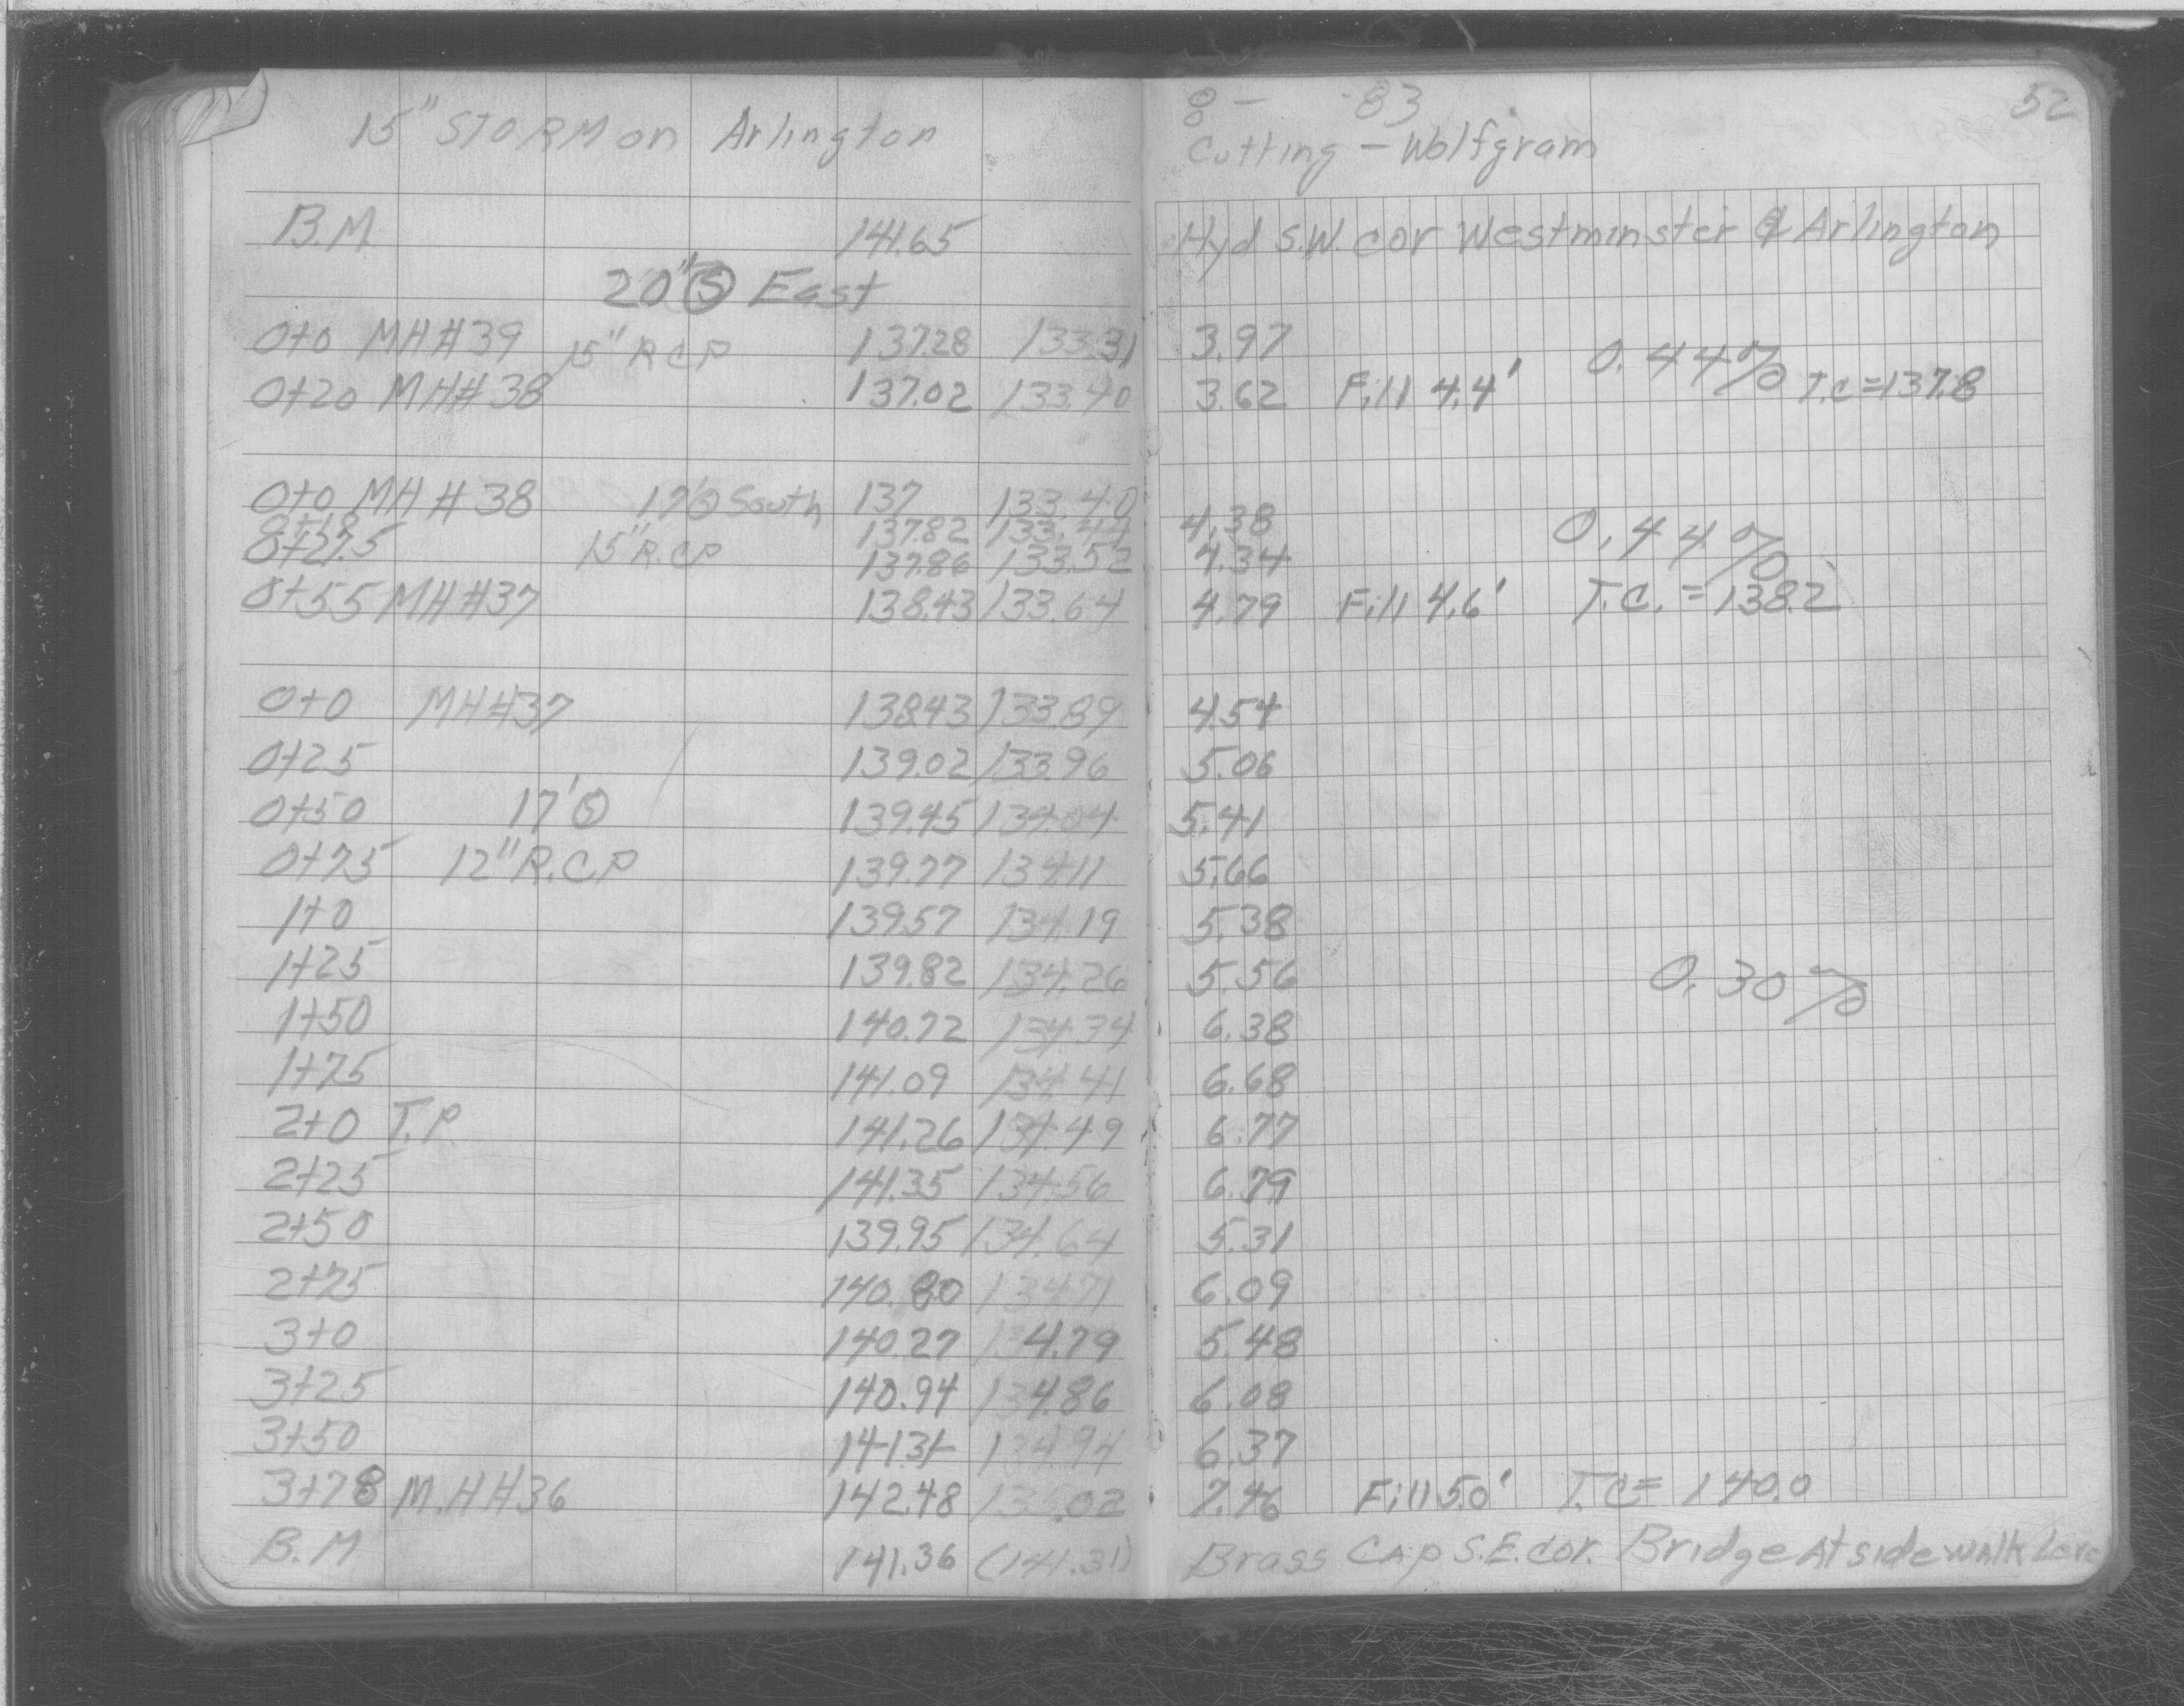 15" STORM on Arlington
B.M. 141.65
20" Ⓢ East
0+0 MH#39 15" R.C.P 137.28 133.31
0+20 MH#38 137.02 133.40
0+0 MH#38 17'Ⓢ South 137 133.40
0+18 137.82 133.44
0+27.5 15" R.C.P 137.86 133.52
0+55 MH#37 138.43 133.64
0+0 MH#37 138.43 133.89
0+25 139.02 133.96
0+50 17'Ⓢ 139.45 134.04
0+75 12" R.C.P 139.77 134.11
1+0 139.57 134.19
1+25 139.82 134.26
1+50 140.72 134.34
1+75 141.09 134.41
2+0 T.P. 141.26 134.49
2+25 141.35 134.56
2+50 139.95 134.64
2+75 140.80 134.71
3+0 140.27 134.79
3+25 140.94 134.86
3+50 141.31 134.94
3+78 M.H#36 142.48 135.02
B.M 141.36 (141.31)
8- -83 52
Cutting - Wolfgram
Hyd S.W. cor Westminster & Arlington
3.97 0.44%
3.62 Fill 4.4' T.C=137.8
4.38 0.44%
4.34
4.79 Fill 4.6' T.C.=138.2
4.54
5.06
5.41
5.66
5.38
5.56 0.30%
6.38
6.68
6.77
6.79
5.31
6.09
5.48
6.08
6.37
7.46 Fill 5.0' T.C= 140.0
Brass Cap S.E. cor. Bridge At sidewalk